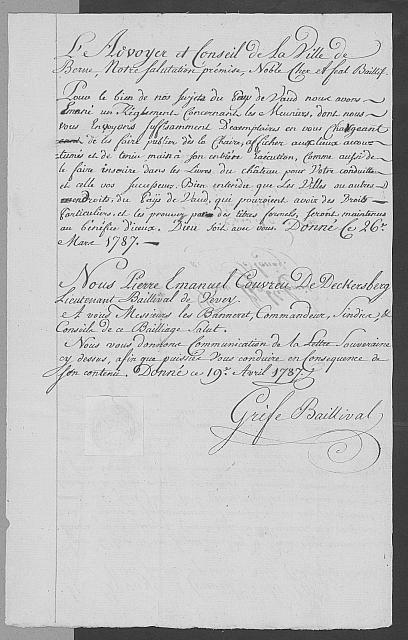 L'Advoyer et Conseil de la Ville de
Berne, Notre salutation prémise, Noble Cher et feal Baillif.
Pour le bien de nos Sujets du Païs de Vaud nous avons
émané un Règlement Concernant les Meuniers, dont nous
vous Envoyons suffisamment D'exemplaires en vous Chargeant
de les faire publier dès la Chaire, afficher aux lieux accou-
tumés et de tenir main à son entière éxécution, Comme aussi de
le faire inscrire dans les Livres du château pour Votre conduitte
et celle vos sucesseurs. Bien entendu que Les Villes ou autres
endroits, du Païs de Vaud, qui pourroient avoir des Droits
Particuliers, et les prouver par des titres formels, seront maintenus
au bénéfice d'iceux. Dieu soit avec vous. Donné Ce 26e.
Mars 1787.
Nous Pierre Emanuel Couvreu De Deckersberg
Lieutenant Baillival de Vevey.
et à vous Messieurs les Banneret, Commandeur, Sindics &
Conseils de ce Bailliage Salut.
Nous vous donnons Communication de la Lettre Souveraine
cy dessus, afin que puissiés Vous conduire en Conséquence de
son contenû. Donné ce 19e. Avril 1787.
Grèfe Baillival